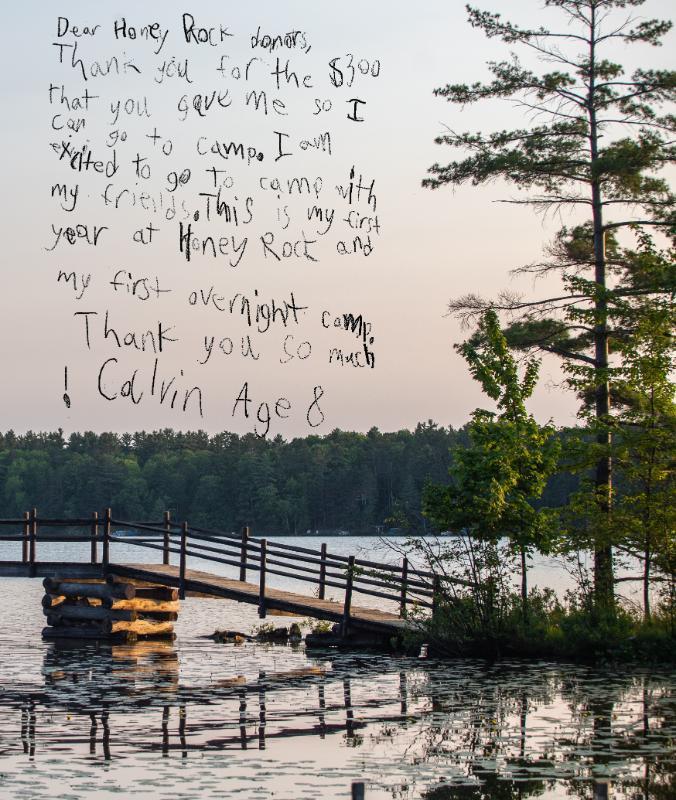 Dear Honey Rock donors,
Thank you for the $300
that you gave me so I
can go to camp. I am
exited to go to camp with
my friends. This is my first
year at Honey Rock and
my first overnight camp.
Thank you so much
! Calvin Age 8